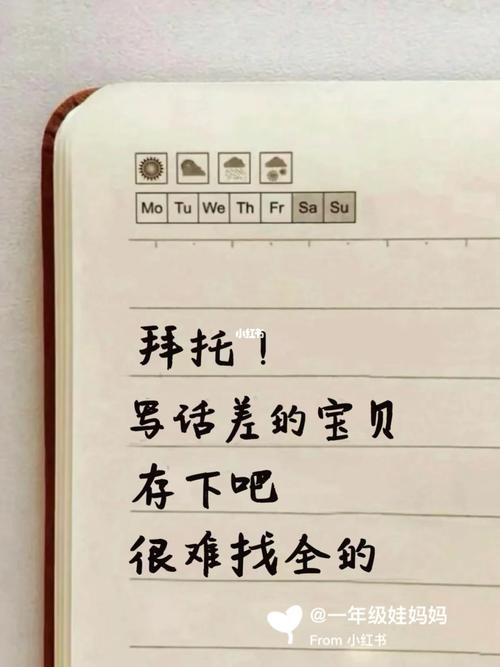 Mo Tu We Th Fr Sa Su
拜托！
小红书
写话差的宝贝
存下吧
很难找全的
@一年级娃妈妈
From 小红书